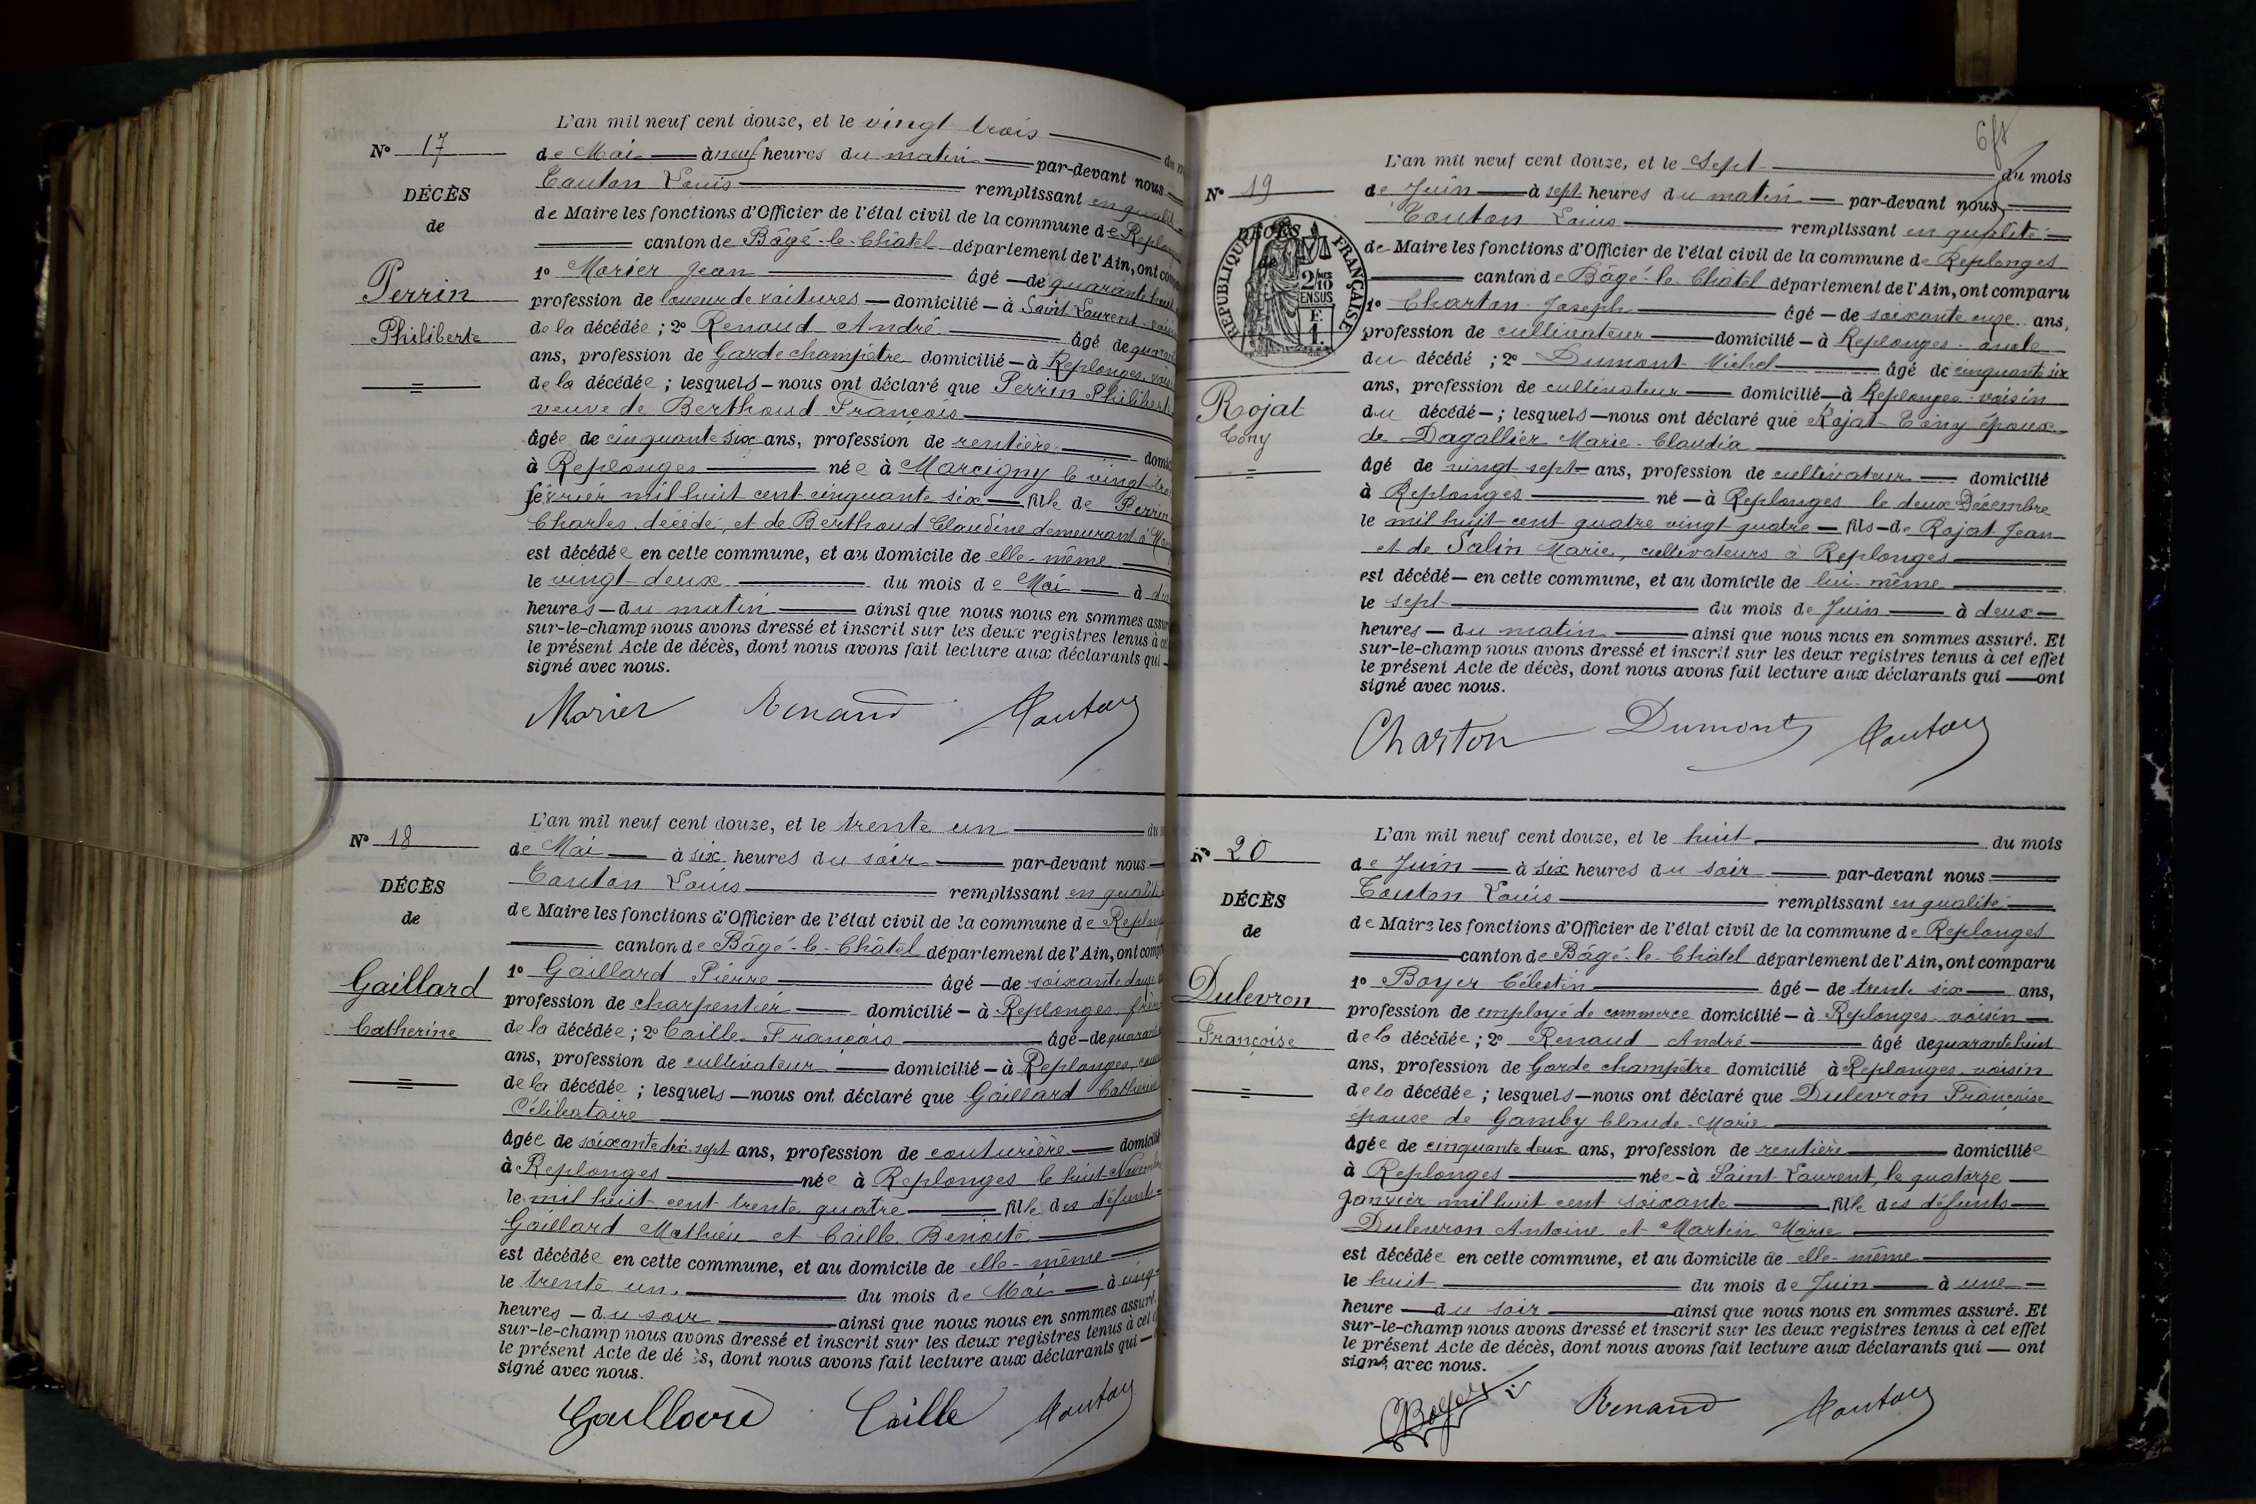 L'an mil neuf cent douze, et le vingt trois
N° 17
de Mai à neuf heures du matin par-devant nous
DÉCÈS
Touton Louis remplissant en qualité
de
de Maire les fonctions d'Officier de l'état civil de la commune de Replonges
canton de Bâgé-le-Châtel département de l'Ain, ont
Perrin
1° Morier Jean âgé de quarante huit
Philiberte
profession de loueur de voitures domicilié à Saint Laurent
de la décédée ; 2° Renaud André âgé de
ans, profession de Garde champêtre domicilié à Replonges
de la décédée ; lesquels nous ont déclaré que Perrin Philiberte
veuve de Berthoud François
âgée de cinquante six ans, profession de rentière
à Replonges née à Marcigny le vingt
février mil huit cent cinquante six fille de Perrin
Charles décédé, et de Berthoud Claudine demeurant à
est décédée en cette commune, et au domicile de elle-même
le vingt deux du mois de Mai à
heures du matin ainsi que nous nous en sommes
sur-le-champ nous avons dressé et inscrit sur les deux registres tenus à
le présent Acte de décès, dont nous avons fait lecture aux déclarants qui
signé avec nous.
Morier Renaud Touton
L'an mil neuf cent douze, et le trente un
N° 18
de Mai à six heures du soir par-devant nous
DÉCÈS
Touton Louis remplissant en qualité
de
de Maire les fonctions d'Officier de l'état civil de la commune de
canton de Bâgé-le-Châtel département de l'Ain, ont
Gaillard
1° Gaillard Pierre âgé de
Catherine
profession de charpentier domicilié à Replonges, frère
de la décédée ; 2° Caille François âgé de
ans, profession de cultivateur domicilié à Replonges,
de la décédée ; lesquels nous ont déclaré que Gaillard Catherine
Célibataire
âgée de soixante dix sept ans, profession de couturière
à Replonges née à Replonges le huit Novembre
le mil huit cent trente quatre fille des défunts
Gaillard Mathieu et Caille Benoite
est décédée en cette commune, et au domicile de elle-même
le trente un du mois de Mai à
heures du soir ainsi que nous nous en sommes assuré.
sur-le-champ nous avons dressé et inscrit sur les deux registres tenus à cet
le présent Acte de décès, dont nous avons fait lecture aux déclarants qui
signé avec nous.
Gaillard Caille Touton
L'an mil neuf cent douze, et le sept du mois
N° 19
de Juin à sept heures du matin par-devant nous
DÉCÈS
Touton Louis remplissant en qualité
RÉPUBLIQUE FRANÇAISE
2/10 EN SUS
F. 1.
de Maire les fonctions d'Officier de l'état civil de la commune de Replonges
canton de Bâgé-le-Châtel département de l'Ain, ont comparu
1° Charton Joseph âgé de soixante onze ans,
profession de cultivateur domicilié à Replonges oncle
du décédé ; 2° Dumont Michel âgé de cinquante six
ans, profession de cultivateur domicilié à Replonges voisin
Rojat
Tony
du décédé ; lesquels nous ont déclaré que Rojat Tony époux
de Dagallier Marie-Claudia
âgé de vingt sept ans, profession de cultivateur domicilié
à Replonges né à Replonges le deux Décembre
le mil huit cent quatre vingt quatre fils de Rojat Jean
et de Salin Marie, cultivateurs à Replonges
est décédé en cette commune, et au domicile de lui-même
le sept du mois de Juin à deux
heures du matin ainsi que nous nous en sommes assuré. Et
sur-le-champ nous avons dressé et inscrit sur les deux registres tenus à cet effet
le présent Acte de décès, dont nous avons fait lecture aux déclarants qui ont
signé avec nous.
Charton Dumont Touton
L'an mil neuf cent douze, et le huit du mois
N° 20
de Juin à six heures du soir par-devant nous
DÉCÈS
Touton Louis remplissant en qualité
de
de Maire les fonctions d'Officier de l'état civil de la commune de Replonges
canton de Bâgé-le-Châtel département de l'Ain, ont comparu
Dulevron
1° Boyer Célestin âgé de trente six ans,
Françoise
profession de employé de commerce domicilié à Replonges voisin
de la décédée ; 2° Renaud André âgé de quarante huit
ans, profession de Garde champêtre domicilié à Replonges voisin
de la décédée ; lesquels nous ont déclaré que Dulevron Françoise
épouse de Gamby Claude-Marie
âgée de cinquante deux ans, profession de rentière domiciliée
à Replonges née à Saint Laurent, le quatorze
Janvier mil huit cent soixante fille des défunts
Dulevron Antoine et Martin Marie
est décédée en cette commune, et au domicile de elle-même
le huit du mois de Juin à une
heure du soir ainsi que nous nous en sommes assuré. Et
sur-le-champ nous avons dressé et inscrit sur les deux registres tenus à cet effet
le présent Acte de décès, dont nous avons fait lecture aux déclarants qui ont
signé avec nous.
Boyer Renaud Touton